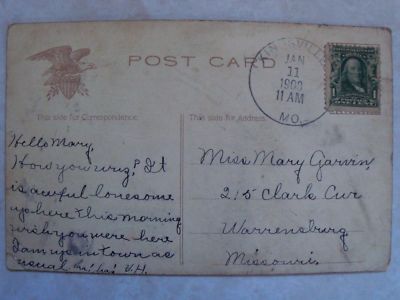 POST CARD
This side for Correspondence.
This side for Address.
KINGSVILLE
JAN
11
1909
11 AM
MO.
1
1
Hello Mary,
How you wuz? It
is awful lonesome
up here this morning
wish you were here
I am up in town as
usual. ha! ha! V.H.
Miss Mary Garvin,
215 Clark Ave
Warrensburg
Missouri.